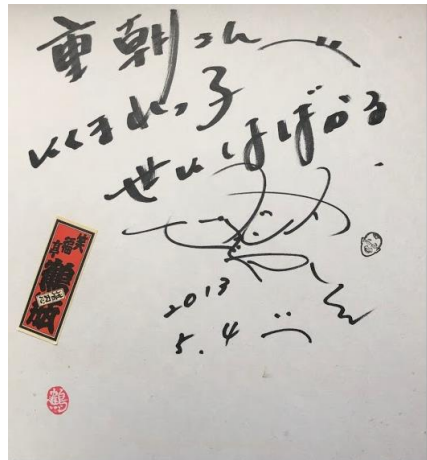 重朝さん
にくまれっ子
世にはばかる
2013
5.4
笑福亭
鶴瓶
鶴